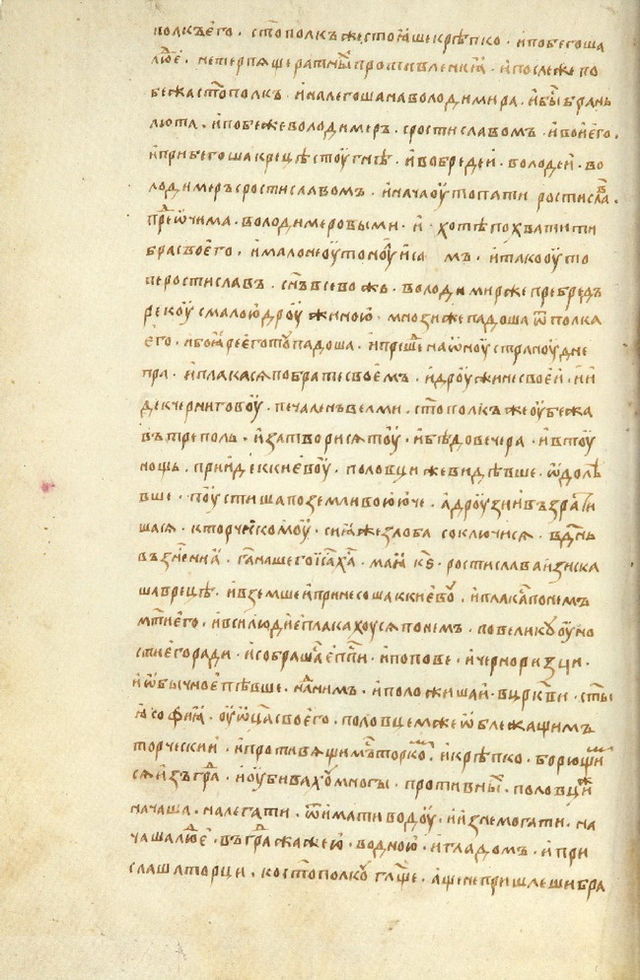 полкъ его · ст҃ополкъ же стоӕше крѣпко · и побегоша
люд҇е · не терпѧще ратных противлениӕ · и послеже по
бежа ст҃ополкъ · и налегоша на володимира · и бы҇ брань
люта · и побеже володимеръ · с ростиславомъ · и вои его ·
и прибегоша к рецѣ стоугнѣ · и вобреде и · володеи · во
лодимеръ с ростиславомъ · и нача оутопати ростисла в ·
пре ѡчима · володимеровыми · и · хотѣ похватити
бра своего · и мало не оутоноу и са мъ · и тако оуто
пе ростиславъ · сн҃ъ всеволожь · володимир же пребредъ
рекоу с малою дроужиною · мнози же падоша ѿ полка
его · и боӕре его тоу падоша · и преше на ѡноу стрⷩ҇оу дне
пра · и плакасѧ по брате своемъ · и дроужине своеи · и и
де к черниговоу · печаленъ велми · ст҃ополкъ же оубежа
въ треполь · и затворисѧ тоу · и бѣ до вечера · и в тоу
нощь · прииде к киевоу · половци же видѣвше · ѡдолѣ
вше · поустиша по земли воююче · а дроузии възрати
шасѧ · к торческомоу · сиӕ же злоба соключисѧ · в дн҃ь
възнсениӕ · га҃ нашего іс҃а х҃а · маӕ к҃ѕ · ростислава изиска
ша в рецѣ · и вземше и принесоша к киевоу · и плакасѧ по немъ
мт҃и его · и вси людие плакахоусѧ по немъ · повеликоу оуно
сти его ради · и собрашасѧ еп҃пи · и попове · и черноризци ·
и ѡбычное пѣвше · над ним · и положиша и · в цркви · ст҃ы
ӕ софиӕ · оу ѡц҃а своего · половцем же ѡблежащимъ
торческии · и противѧщимъ торкомъ · и крѣпко · борющим
сѧ из град · и оубивахоу многы · противных · половци же
начаша · налегати · ѿимати водоу · и изнемогати · на
чаша люд҇е · въ граде жажею · водною · и гладомъ · и при
слаша торци · ко ст҃ополкоу гл҃ще · аще не пришлеши бра